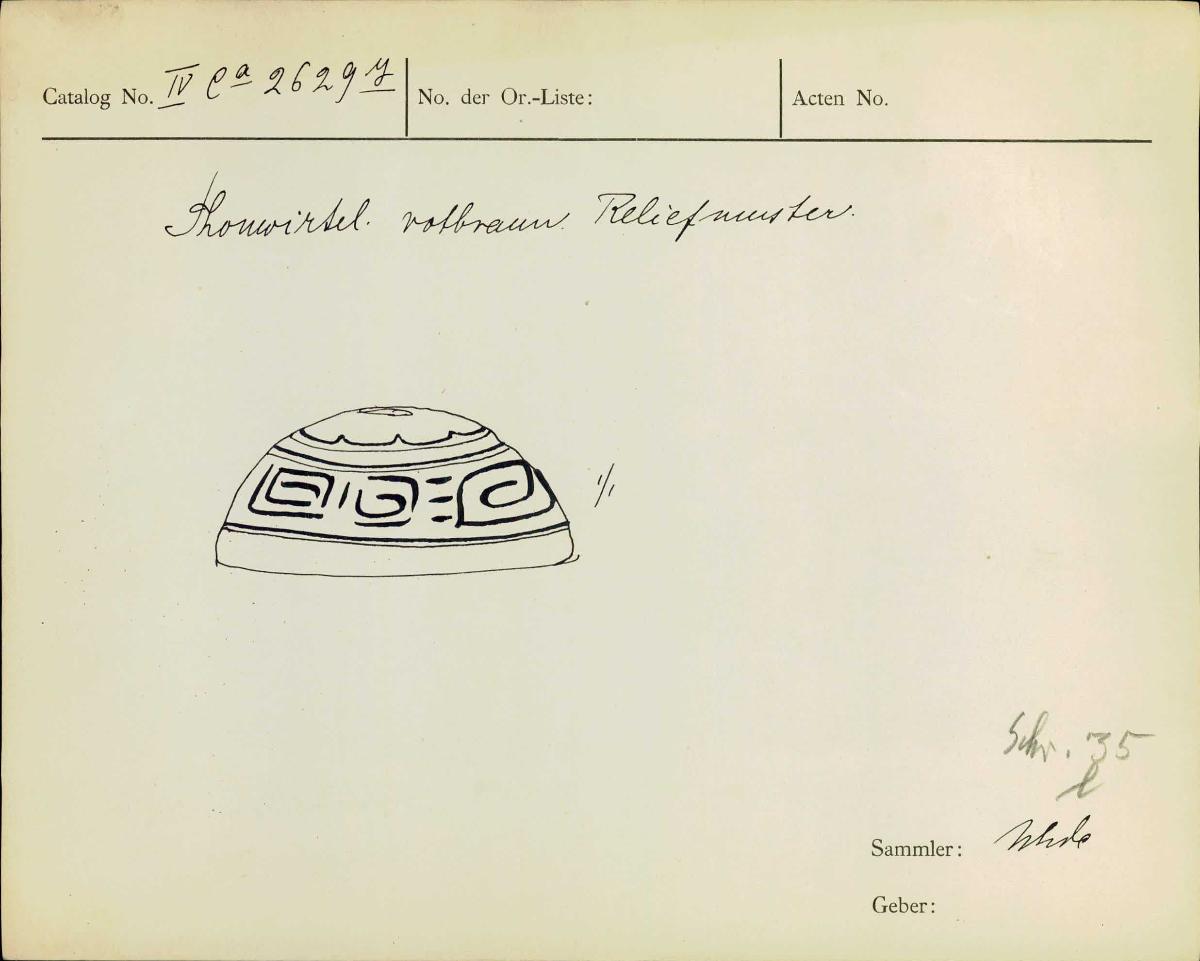 Catalog No. IV Ca 2629 y
No. der Or.-Liste:
Acten No.
Thonwirtel. rotbraun. Reliefmuster.
1/1
Schr. 35
l
Sammler: Uhde
Geber: